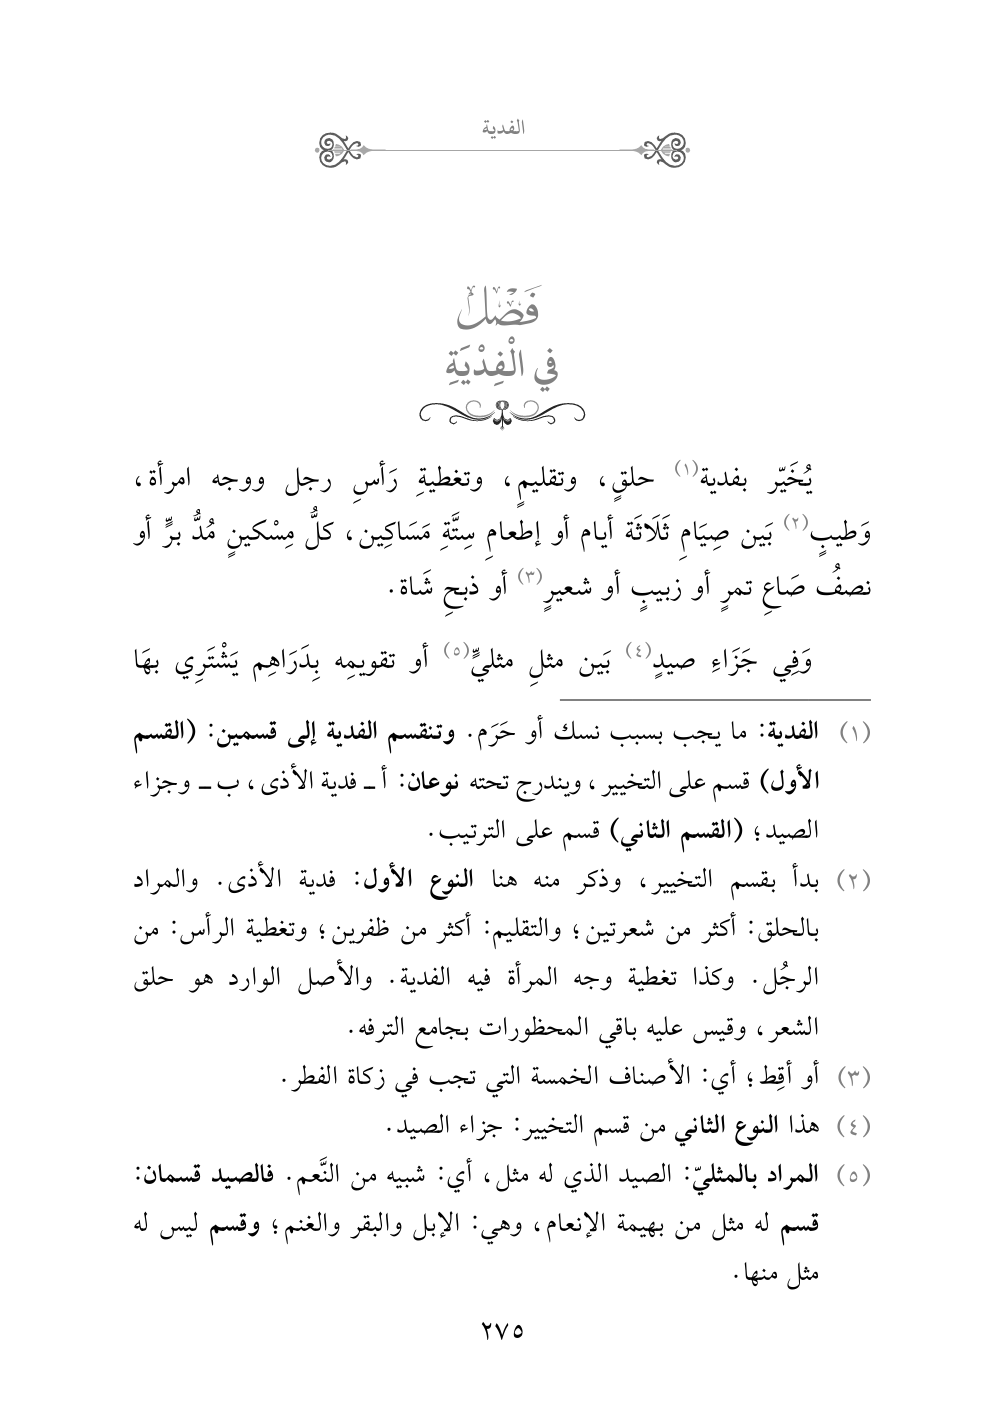 الفدية
فَصْل
في الْفِدْيَةِ
يُخَيّر بفدية(١) حلقٍ، وتقليمٍ، وتغطيةِ رَأسِ رجل ووجه امرأة،
وَطيبٍ(٢) بَين صِيَامِ ثَلَاثَة أيام أو إطعامِ سِتَّةِ مَسَاكِين، كلُّ مِسْكينٍ مُدُّ برٍّ أو
نصفُ صَاعِ تمرٍ أو زبيبٍ أو شعيرٍ(٣) أو ذبحِ شَاة.
وَفِي جَزَاءِ صيدٍ(٤) بَين مثلِ مثليٍّ(٥) أو تقويمِه بِدَرَاهِم يَشْتَرِي بهَا
(١) الفدية: ما يجب بسبب نسك أو حَرَم. وتنقسم الفدية إلى قسمين: (القسم
الأول) قسم على التخيير، ويندرج تحته نوعان: أ ـ فدية الأذى، ب ـ وجزاء
الصيد؛ (القسم الثاني) قسم على الترتيب.
(٢) بدأ بقسم التخيير، وذكر منه هنا النوع الأول: فدية الأذى. والمراد
بالحلق: أكثر من شعرتين؛ والتقليم: أكثر من ظفرين؛ وتغطية الرأس: من
الرجُل. وكذا تغطية وجه المرأة فيه الفدية. والأصل الوارد هو حلق
الشعر، وقيس عليه باقي المحظورات بجامع الترفه.
(٣) أو أقِط؛ أي: الأصناف الخمسة التي تجب في زكاة الفطر.
(٤) هذا النوع الثاني من قسم التخيير: جزاء الصيد.
(٥) المراد بالمثليّ: الصيد الذي له مثل، أي: شبيه من النَّعم. فالصيد قسمان:
قسم له مثل من بهيمة الإنعام، وهي: الإبل والبقر والغنم؛ وقسم ليس له
مثل منها.
٢٧٥